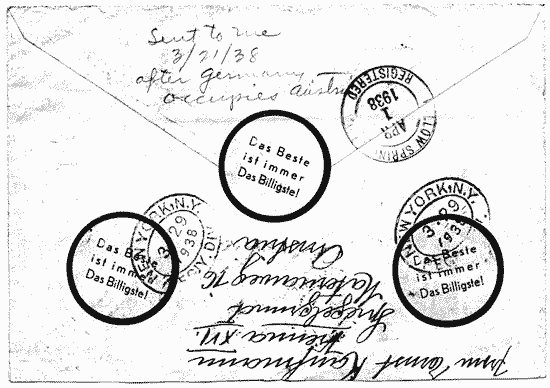 Sent to me
3/21/38
after Germany
occupies Austria
REGISTERED
APR
1
1938
LLOW SPRIN
Das Beste
ist immer
Das Billigste!
YORK, N.Y.
3-29
1938
DIV.
Das Beste
ist immer
Das Billigste!
W YORK, N.Y.
3-29
1938
Das Beste
ist immer
Das Billigste!
Ernst Kaufmann
Vienna XII.
76
Austria